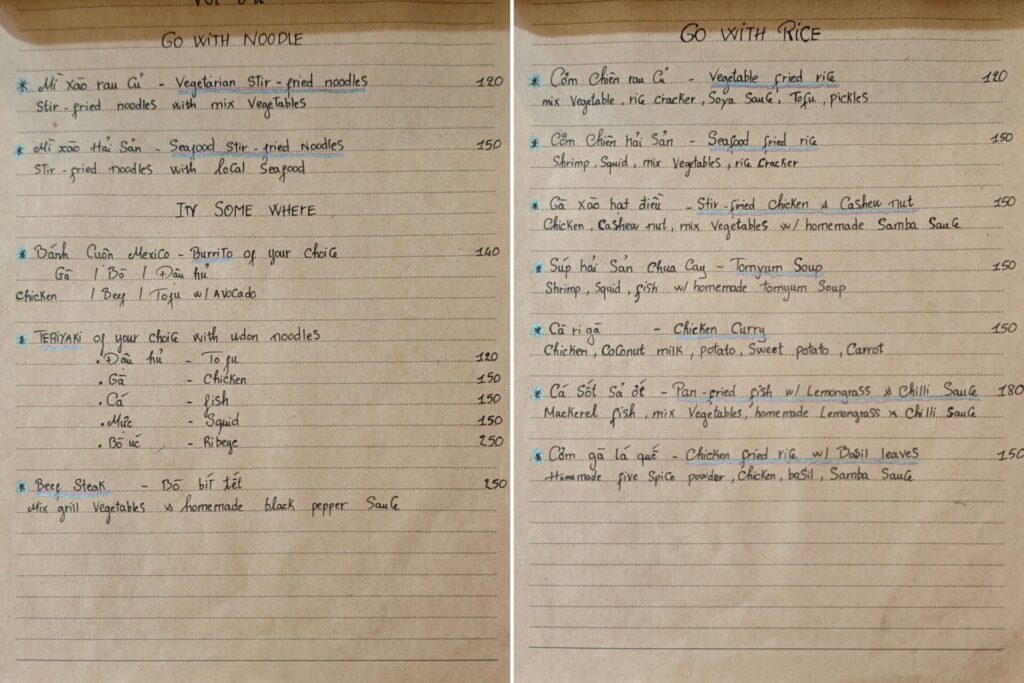 GO WITH NOODLE
* Mì xào rau củ - Vegetarian Stir-fried noodles 120
Stir-fried noodles with mix Vegetables
* Mì xào Hải Sản - Seafood Stir-fried Noodles 150
Stir-fried noodles with local Seafood
IN SOME WHERE
* Bánh Cuốn Mexico - Burrito of your choice 140
Gà / Bò / Đậu hủ
Chicken / Beef / Tofu w/ AVOCADO
* TERIYAKI of your choice with udon noodles
. Đậu hủ - Tofu 120
. Gà - Chicken 150
. Cá - fish 150
. Mực - Squid 150
. Bò úc - Ribeye 250
* Beef Steak - Bò bít tết 250
Mix grill Vegetables & homemade black pepper Sauce
GO WITH RICE
* Cơm Chiên rau Củ - Vegetable fried rice 120
mix Vegetable, rice cracker, Soya Sauce, Tofu, pickles
* Cơm Chiên hải Sản - Seafood fried rice 150
Shrimp, Squid, mix Vegetables, rice cracker
* Gà xào hạt điều - Stir-fried Chicken & Cashew nut 150
Chicken, Cashew nut, mix Vegetables w/ homemade Samba Sauce
* Súp hải Sản Chua Cay - Tomyum Soup 150
Shrimp, Squid, fish w/ homemade tomyum Soup
* Cà ri gà - Chicken Curry 150
Chicken, Coconut milk, potato, Sweet potato, Carrot
* Cá Sốt Sả ớt - Pan-fried fish w/ Lemongrass & Chilli Sauce 180
Mackerel fish, mix Vegetables, homemade Lemongrass & Chilli Sauce
* Cơm gà lá quế - Chicken fried rice w/ Basil leaves 150
Homemade five Spice powder, Chicken, basil, Samba Sauce